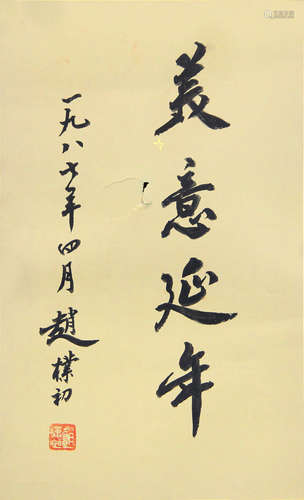 美意延年
一九八七年四月
趙樸初